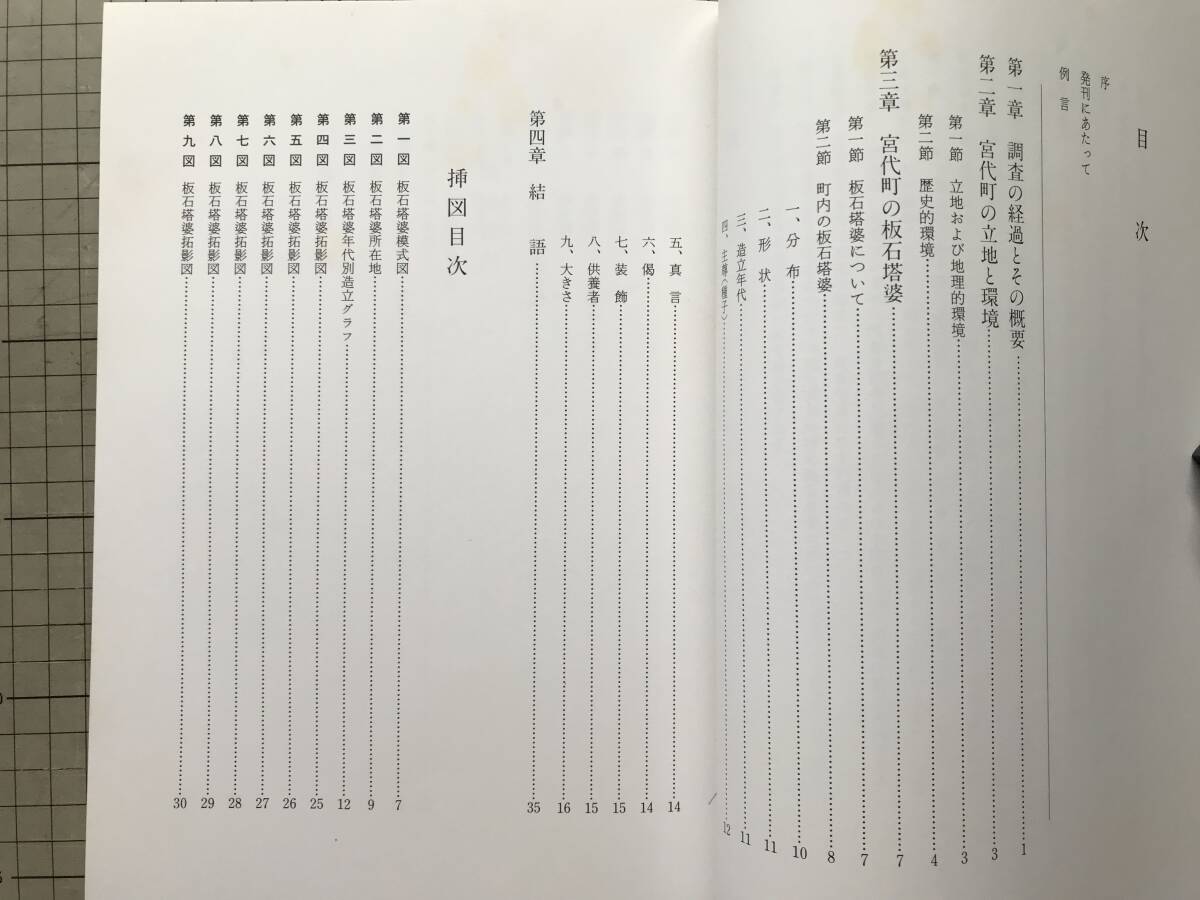 目次
序
発刊にあたって
例言
第一章 調査の経過とその概要……1
第二章 宮代町の立地と環境……3
第一節 立地および地理的環境……3
第二節 歴史的環境……4
第三章 宮代町の板石塔婆……7
第一節 板石塔婆について……7
第二節 町内の板石塔婆……8
一、分布……10
二、形状……11
三、造立年代……11
四、主尊(種子)……12
五、真言……14
六、偈……14
七、装飾……15
八、供養者……15
九、大きさ……16
第四章 結語……35
挿図目次
第一図 板石塔婆模式図……7
第二図 板石塔婆所在地……9
第三図 板石塔婆年代別造立グラフ……12
第四図 板石塔婆拓影図……25
第五図 板石塔婆拓影図……26
第六図 板石塔婆拓影図……27
第七図 板石塔婆拓影図……28
第八図 板石塔婆拓影図……29
第九図 板石塔婆拓影図……30